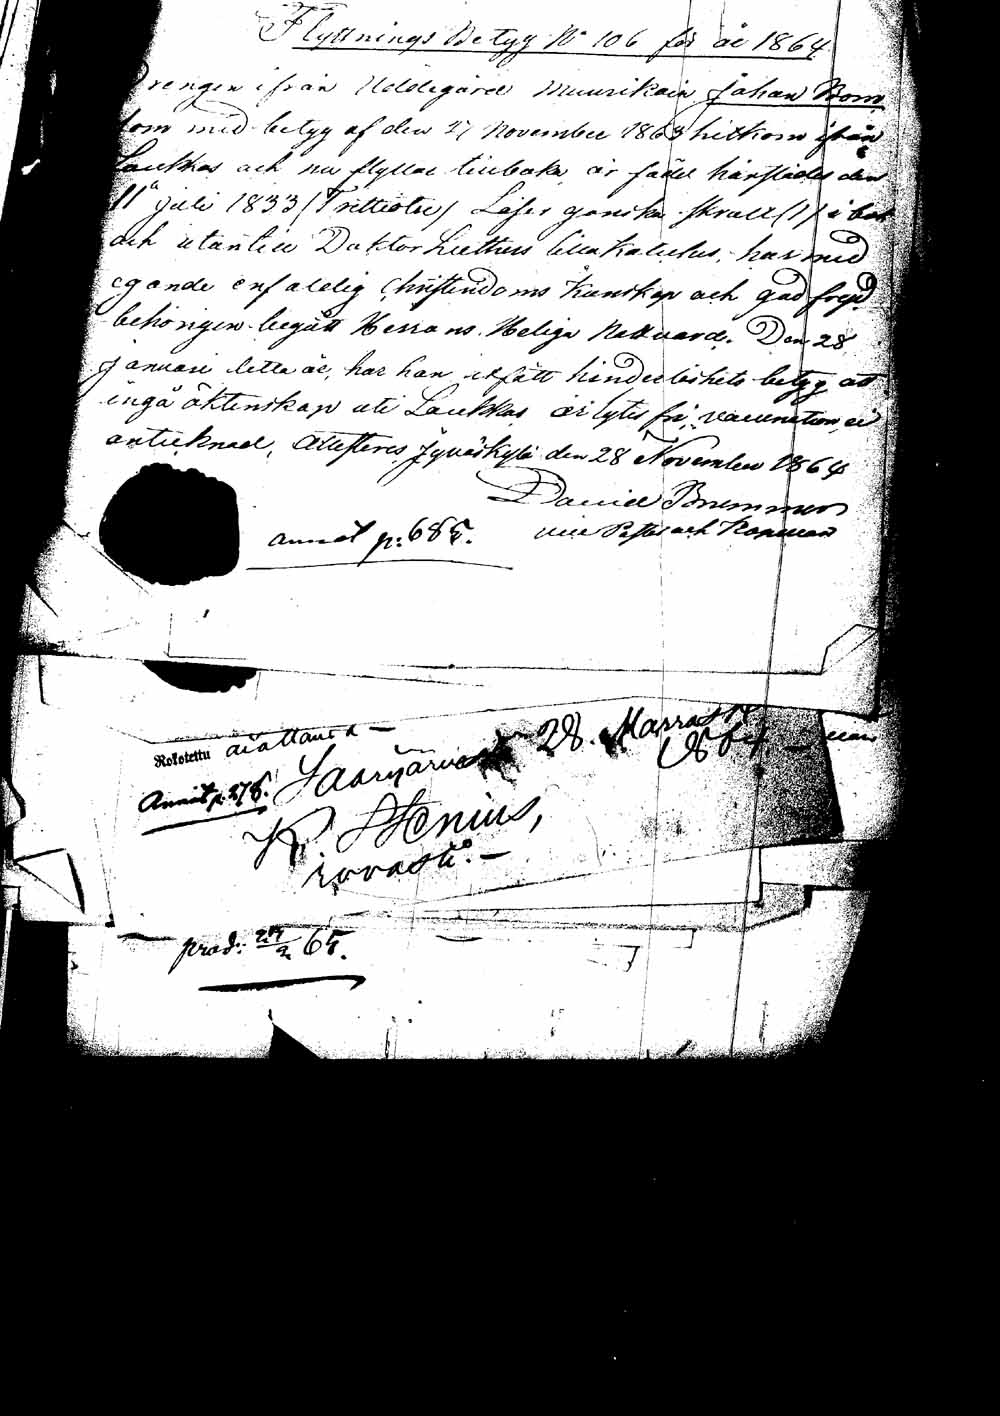 Flyttnings Betyg No 106 för år 1864
Drengen ifrån Uddegård Muurikain Johan Bom,
som med betyg af den 27 November 1863 hitkom ifrån
Laukkas och nu flyttar tillbaka, är född härstädes den
11 Juli 1833 (Trettiotre) Läser ganska skralt (1) i bok
och utantill Doktor Luthers lilla Katekes, har med
egande enfaldig Christendoms kunskap och god frejd
behörigen begått Herrans Heliga Nattvard. Den 28
Januari detta år, har han erhållit hinderlöshets betyg att
ingå äktenskap uti Laukkas är lytes fri, vaccination ej
antecknad, attesteres Jyväskylä den 28 November 1864
Daniel Brummer
vice Pastor och Kapellan
annot p: 685.
Rokotettu
Annot p. 278.
Saarijärvellä 28. Marrask
1864. —
K. Stenius,
rovasti. —
prod: 27/2 65.